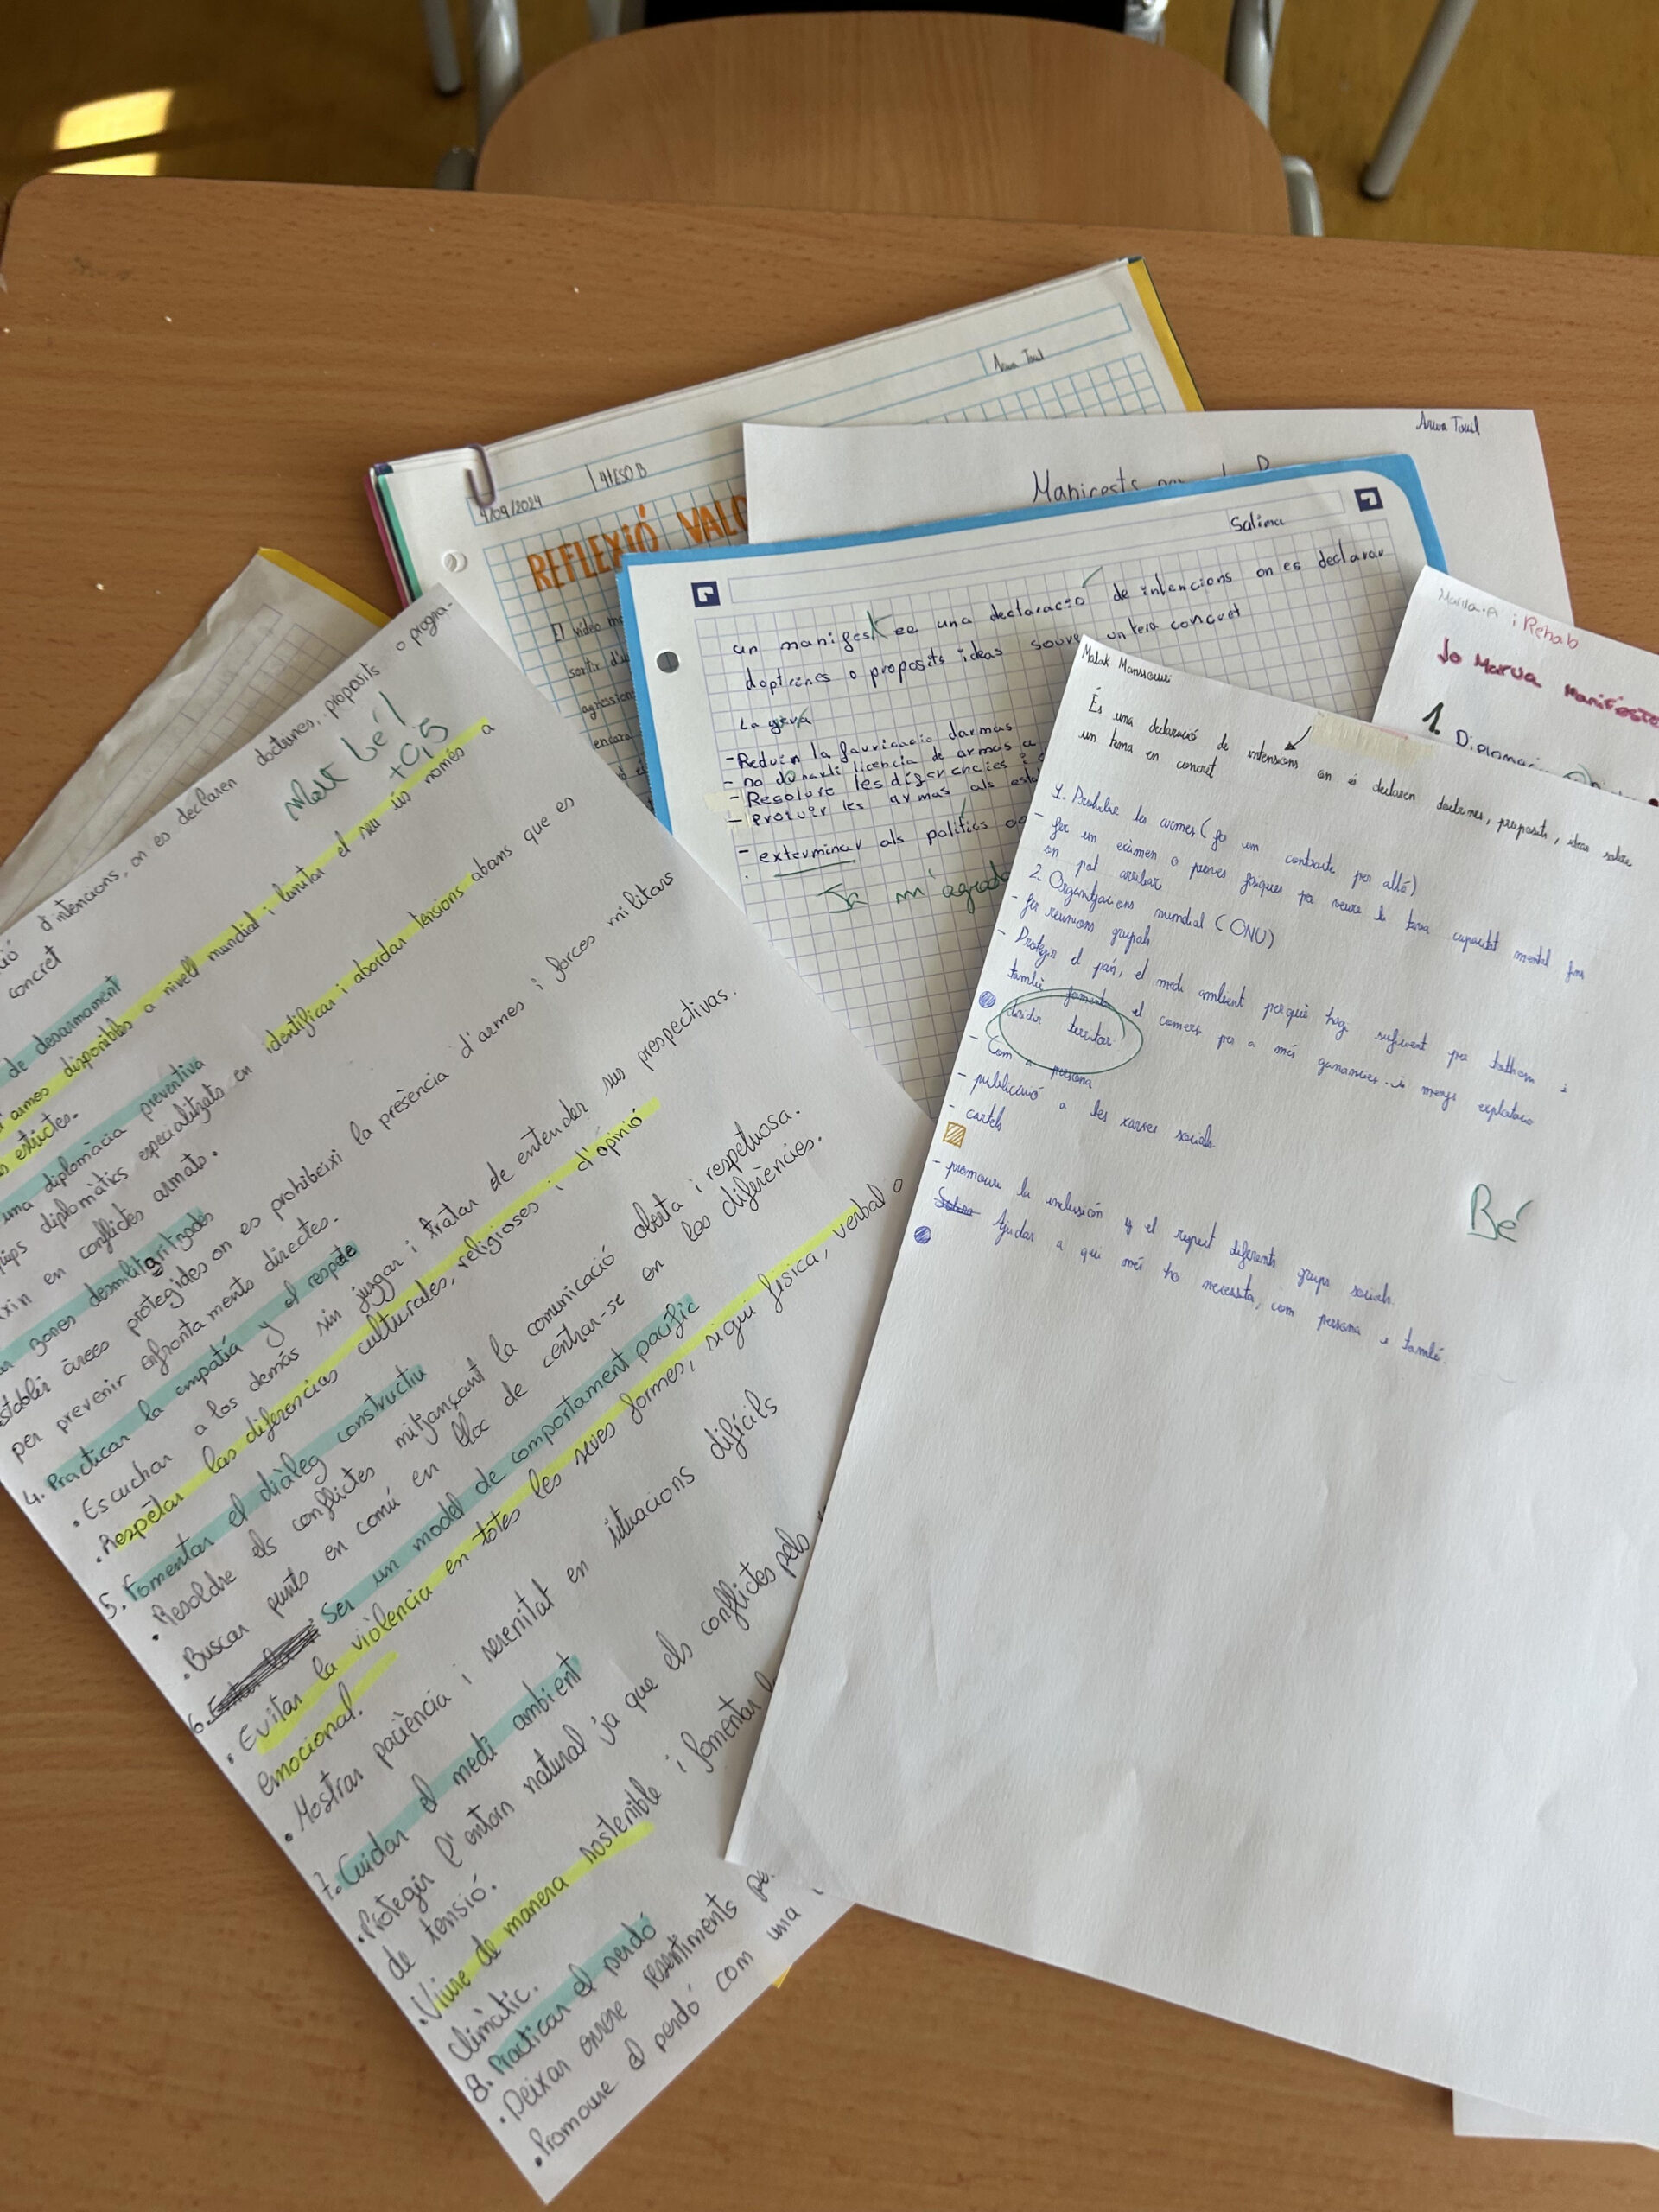 Arwa Touil
4/09/2024
4t ESO B
REFLEXIÓ VALO
El video
sortir
agressions
encara
Arwa Touil
Manifests
Salima
un manifest ee una declaració de intencions on es declarar
doptrines o proposits ideas sovre un tema concret
La guerra
- Reduir la favricacio d'armas
- no donarli licencia de armas a
- Resoldre les diferencies i
- Proivir les armas als
- exterminar als politics
Ja m'agrada
Marua.A i Rehab
Jo Marua Manifesto
1. Diplomacia
Malak Manssouri
És una declaració de intensions on es declaren doctrines, proposits, ideas sobre
un tema en concret
1. Prohibir les armes (fer un contracte per allò)
- fer un exàmen o proves físiques per veure la teva capacitat mental fins
on pot arribar
2. Organitzacions mundial (ONU)
- fer reunions grupals
- Protegir el país, el medi ambient perquè hagi suficient per tothom i
també fomentar el comers per a més ganancies i menys explotacio
dividir territori
- Com a persona
- publicació a les xarxes socials
- cartels
- promoure la inclusión y el respect diferents grups socials.
Ajudar a qui més ho necessita, com persona i també
Bé
ció d'intencions, on es declaren doctrines, propòsits o progra-
concret
Molt bé!
+0,5
de desarmament
d'armes disponibles a nivell mundial i limitar el seu ús només a
s estrictes.
una diplomàcia preventiva
quips diplomàtics especialitzats en identificar i abordar tensions abans que es
ixin en conflictes armats.
ar zones desmilitaritzades
establir àrees protegides on es prohibeixi la presència d'armes i forces militars
per prevenir enfrontaments directes.
4. Practicar la empatía y el respete
• Escuchar a los demás sin juzgar i tratar de entender sus prespectivas.
• Respetar las diferencias culturales, religioses i d'opinió
5. Fomentar el diàleg constructiu
• Resoldre els conflictes mitjançant la comunicació aberta i respetuosa.
• Buscar punts en comú en lloc de centrar-se en les diferències.
6. Ser un model de comportament pacífic
• Evitar la violència en totes les seves formes, sigui física, verbal o
emocional.
• Mostrar paciència i serenitat en situacions difícils
7. Cuidar el medi ambient
• Protegir l'entorn natural ja que els conflictes pels
de tensió.
• Viure de manera sostenible i fomentar
climàtic.
8. Practicar el perdó
• Deixar enrere resentiments
• Promoure el perdó com una